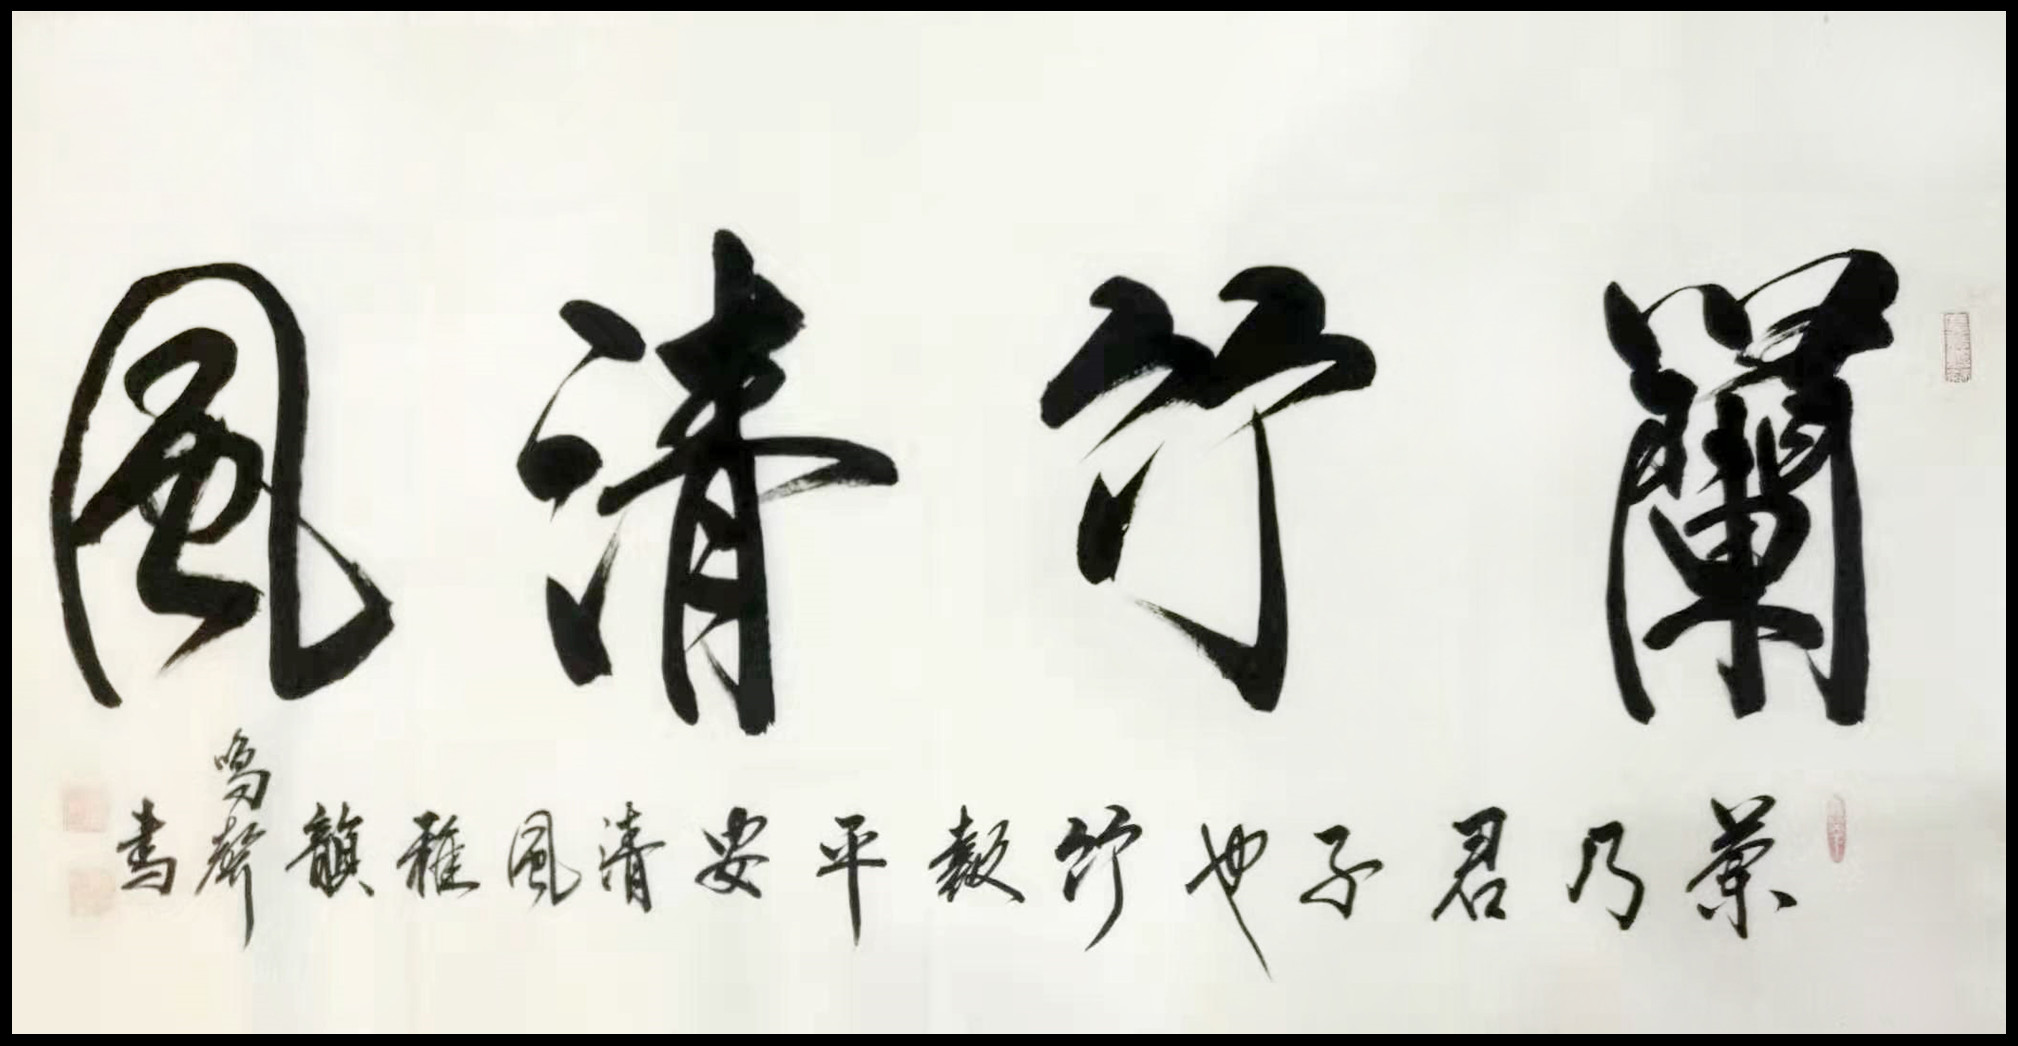 蘭竹清風
蘭乃君子也竹報平安清風雅韻
鳴聲書